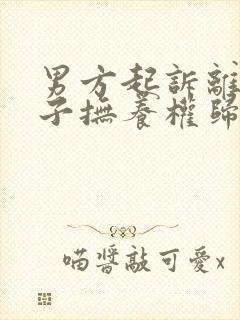 男方起訴離
子撫養權歸
喵醬敲可愛x